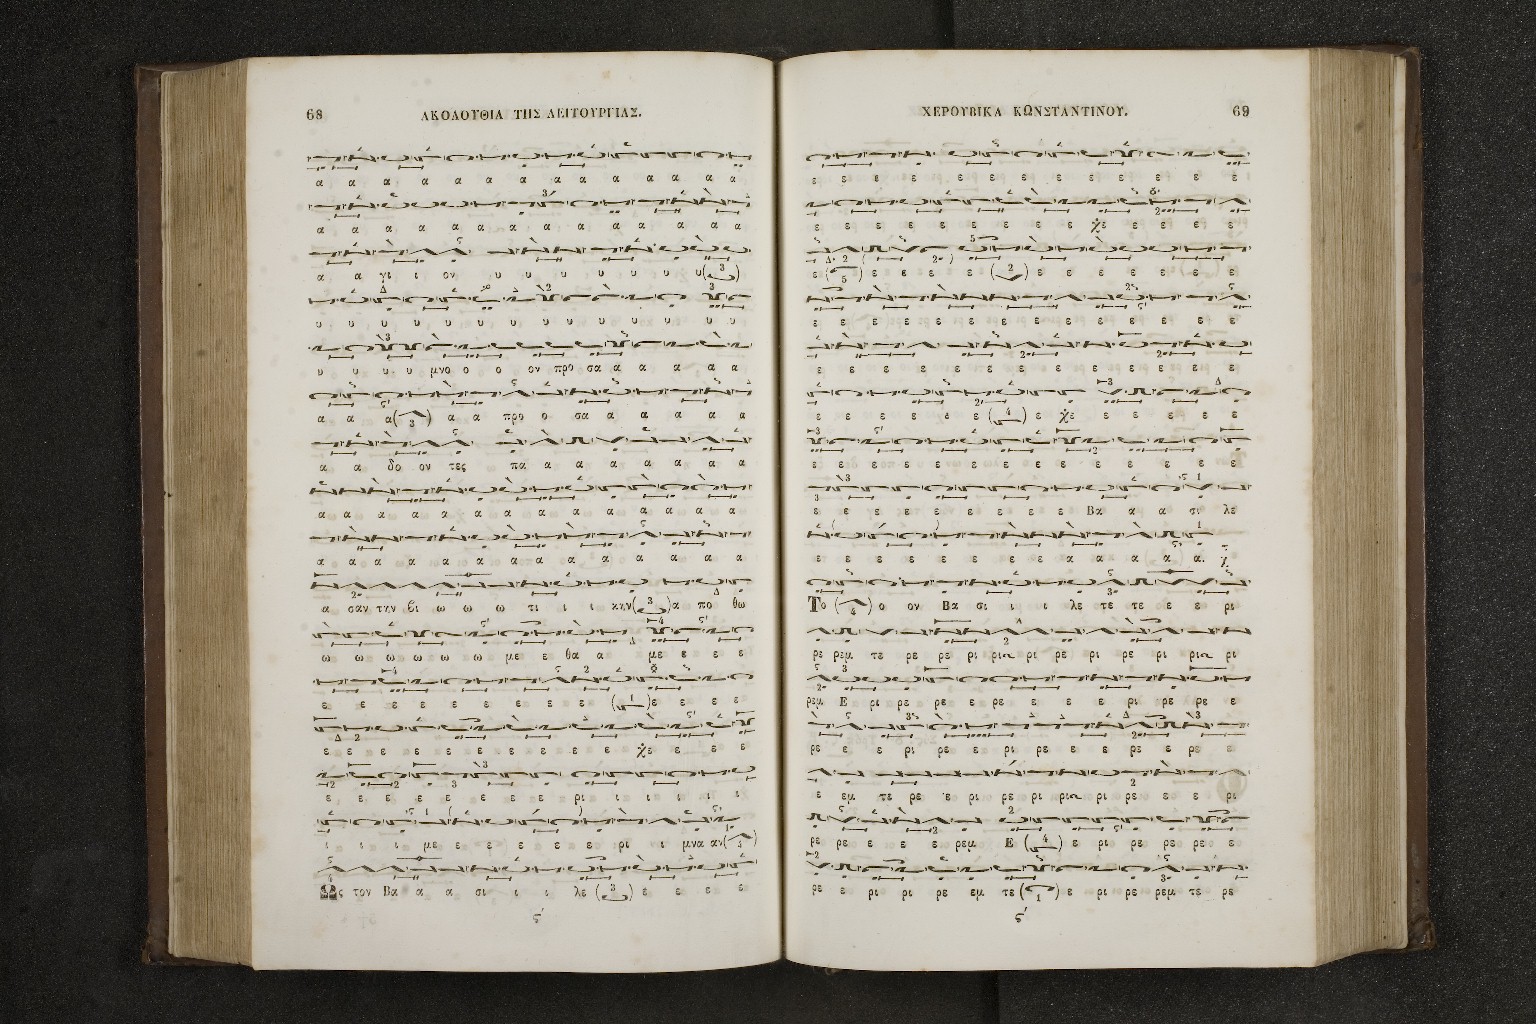 68
ΑΚΟΛΟΥΘΙΑ ΤΗΣ ΛΕΙΤΟΥΡΓΙΑΣ.
α α α α α α α α α α α α α α
α α α α α α α α α α α α α α
α α γι ι ον υ υ υ υ υ υ υ υ
υ υ υ υ υ υ υ υ υ υ υ υ υ υ
υ υ υ υ μνο ο ο ον προ σα α α α α α
α α α α α προ ο σα α α α α α
α α δο ον τες πα α α α α α α α
α α α α α α α α α α α α α α
α α α α α α α α α α α α α
α σαν την βι ω ω ω τι ι ι κην α πο θω
ω ω ω ω ω ω με ε θα α με ε ε ε
ε ε ε ε ε ε ε ε ε ε ε ε
ε ε ε ε ε ε ε ε ε ε ε χε ε ε ε
ε ε ε ε ε ε ε ε ρι ι ι ι ι ι
ι ι ι με ε ε ε ε ε ρι ι μνα αν
Ως τον Βα α α σι ι ι λε ε ε ε ε
ς΄
ΧΕΡΟΥΒΙΚΑ ΚΩΝΣΤΑΝΤΙΝΟΥ.
69
ε ε ε ε ε ε ε ε ε ε ε ε ε
ε ε ε ε ε ε ε ε χε ε ε ε ε
ε ε ε ε ε ε ε ε ε ε ε ε ε
ε ε ε ε ε ε ε ε ε ε ε ε ε ε
ε ε ε ε ε ε ε ε ε ε ε ε ε
ε ε ε ε ε ε ε χε ε ε ε ε ε
ε ε ε ε ε ε ε ε ε ε ε ε ε
ε ε ε ε ε ε ε ε ε Βα α α σι λε
ε ε ε ε ε ε ε ε α α α α α.
Το ο ον Βα σι ι ι λε τε τε ε ε ρι
ρε ρεμ τε ρε ρε ρι ρι ρι ρε ρι ρε ρι ρι ρι
ρεμ Ε ρι ρε ρε ε ρε ε ε ε ρι ρε ρε ε
ρε ε ε ρι ρε ε ρι ρε ε ε ρε ε ρε ε
ε εμ τε ρε ε ρι ρε ρι ρι ρι ρε ε ε ρι
ρε ρε ε ε ε ρεμ Ε ε ρι ρε ρε ρε ε
ρε ε ρι ρι ρε εμ τε ε ρι ρε ρεμ τε ρε
ς΄